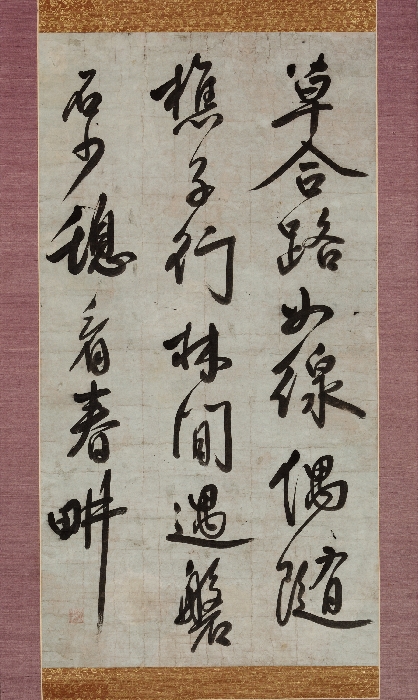 草合路如線偶隨
樵子行林間遇磐
石少憩看春畊